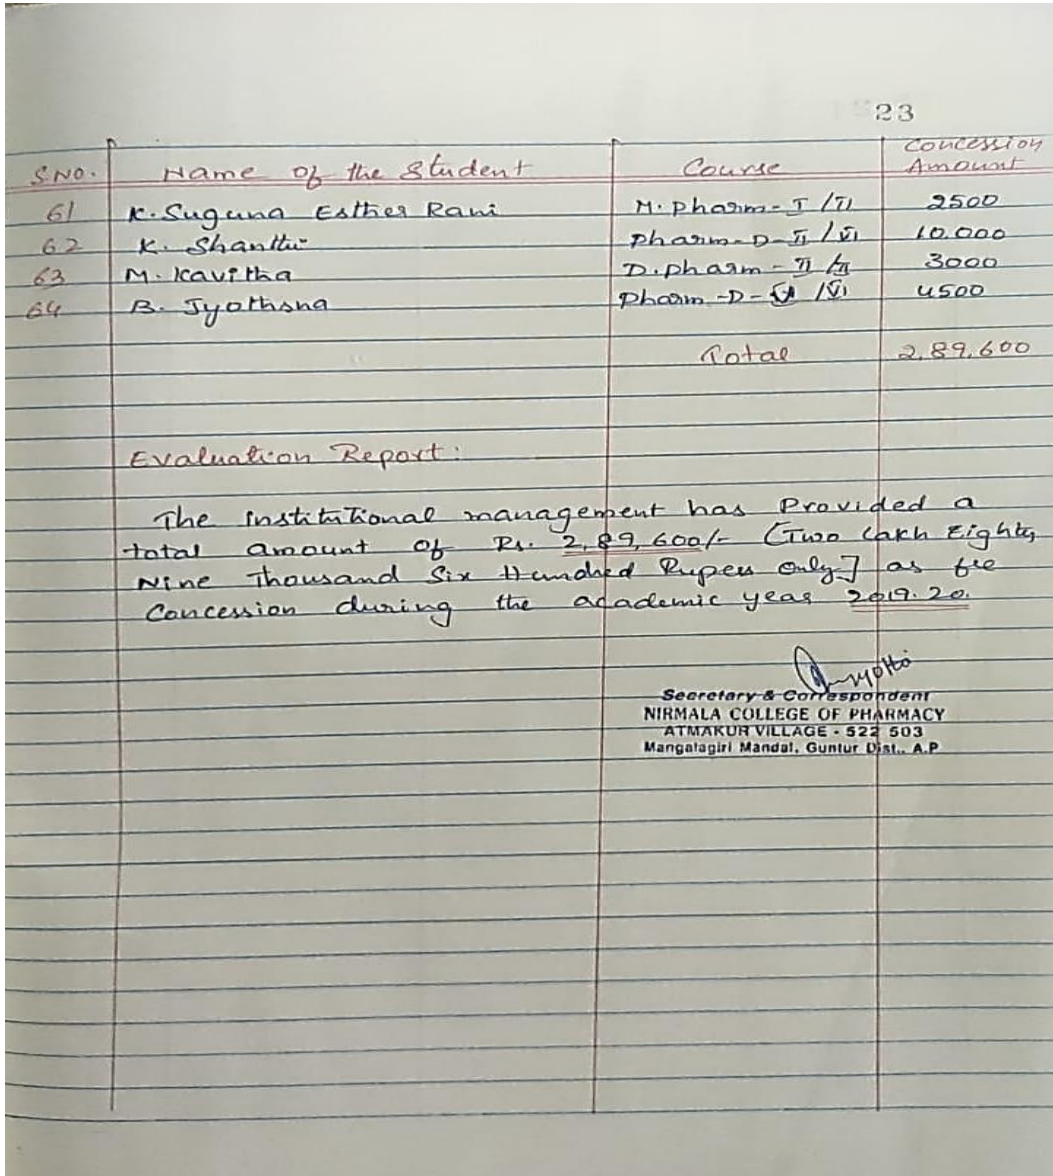 23
S.NO. Name of the Student Course Concession Amount
61 K. Suguna Esther Rani M. Pharm - I / II 2500
62 K. Shanthi Pharm - D - II / VI 10.000
63 M. Kavitha D. Pharm - II / II 3000
64 B. Jyothsna Pharm - D - / VI 4500
Total 2,89,600
Evaluation Report:
The institutional management has Provided a
total amount of Rs. 2,89,600/- (Two Lakh Eighty
Nine Thousand Six Hundred Rupees Only] as fee
Concession during the academic year 2019.20.
Secretary & Correspondent
NIRMALA COLLEGE OF PHARMACY
ATMAKUR VILLAGE - 522 503
Mangalagiri Mandal, Guntur Dist., A.P